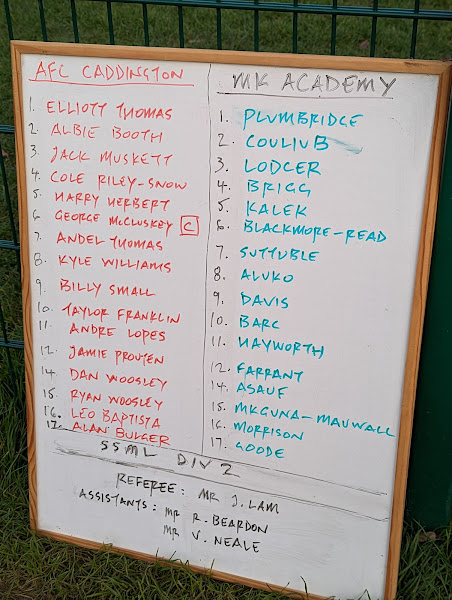 AFC CADDINGTON
1. ELLIOTT THOMAS
2. ALBIE BOOTH
3. JACK MUSKETT
4. COLE RILEY-SNOW
5. HARRY HERBERT
6. GEORGE McCLUSKEY C
7. ANDEL THOMAS
8. KYLE WILLIAMS
9. BILLY SMALL
10. TAYLOR FRANKLIN
11. ANDRE LOPES
12. JAMIE PROUTEN
14. DAN WOOSLEY
15. RYAN WOOSLEY
16. LEO BAPTISTA
17. ALAN BULGER
MK ACADEMY
1. PLUMBRIDGE
2. COULIUB
3. LODGER
4. BRIGG
5. KALEK
6. BLACKMORE-READ
7. SUTTUBLE
8. ALUKO
9. DAVIS
10. BARC
11. HAYWORTH
12. FARRANT
14. ASAUF
15. MKGUNA-MAUWALL
16. MORRISON
17. GOODE
SSML DIV 2
REFEREE: MR J. LAM
ASSISTANTS: MR R. BEARDON
MR V. NEALE